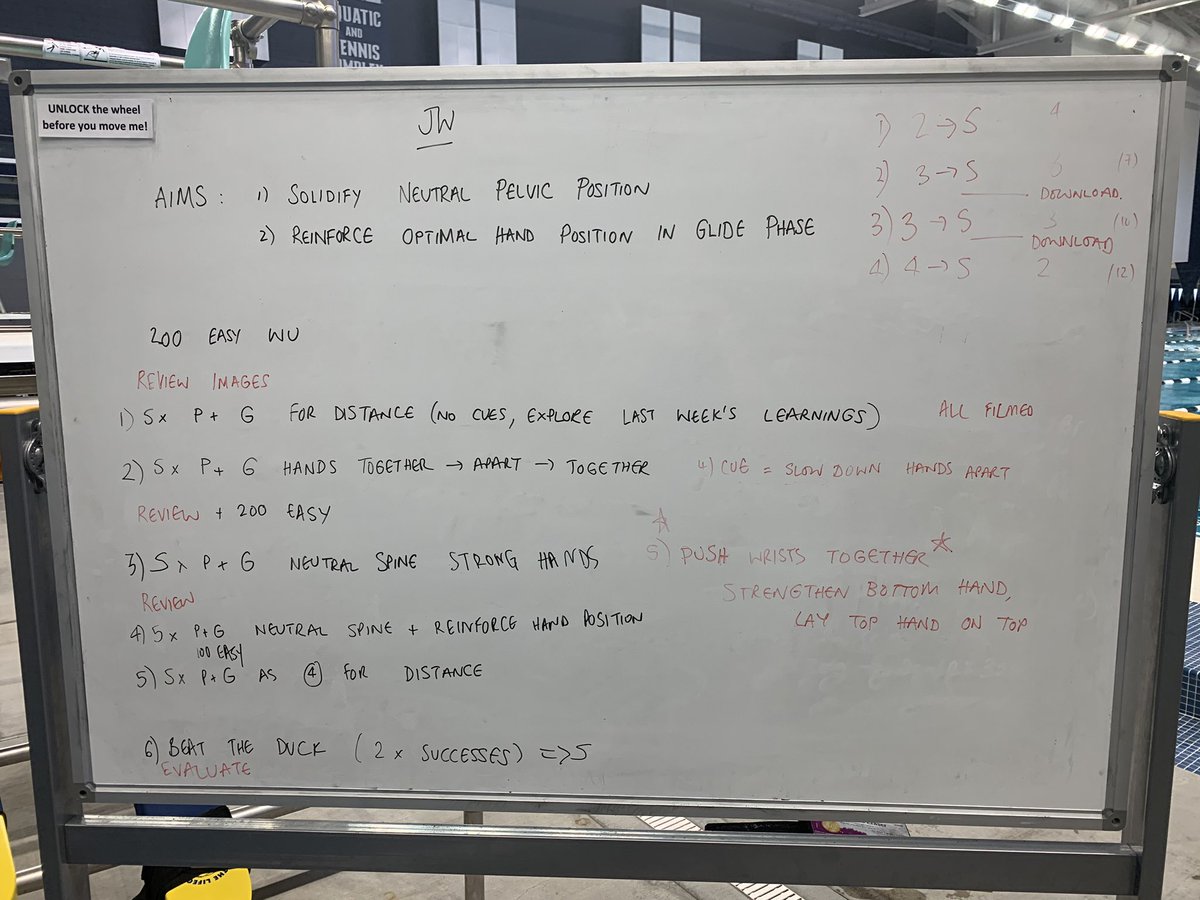 UATIC
AND
ENNIS
UNLOCK the wheel
before you move me!
JW
AIMS : 1) SOLIDIFY NEUTRAL PELVIC POSITION
2) REINFORCE OPTIMAL HAND POSITION IN GLIDE PHASE
1) 2 → 5 4
2) 3 → 5 (7)
DOWNLOAD.
3) 3 → 5 3 (10)
DOWNLOAD
4) 4 → 5 2 (12)
200 EASY WU
REVIEW IMAGES
1) 5x P + G FOR DISTANCE (NO CUES, EXPLORE LAST WEEK'S LEARNINGS) ALL FILMED
2) 5 x P + G HANDS TOGETHER → APART → TOGETHER 4) CUE = SLOW DOWN HANDS APART
REVIEW + 200 EASY
3) 5 x P + G NEUTRAL SPINE STRONG HANDS 5) PUSH WRISTS TOGETHER
STRENGTHEN BOTTOM HAND,
LAY TOP HAND ON TOP
REVIEW
4) 5 x P+G NEUTRAL SPINE + REINFORCE HAND POSITION
100 EASY
5) 5x P+G AS ④ FOR DISTANCE
6) BEAT THE DUCK ( 2 x SUCCESSES) => 5
EVALUATE